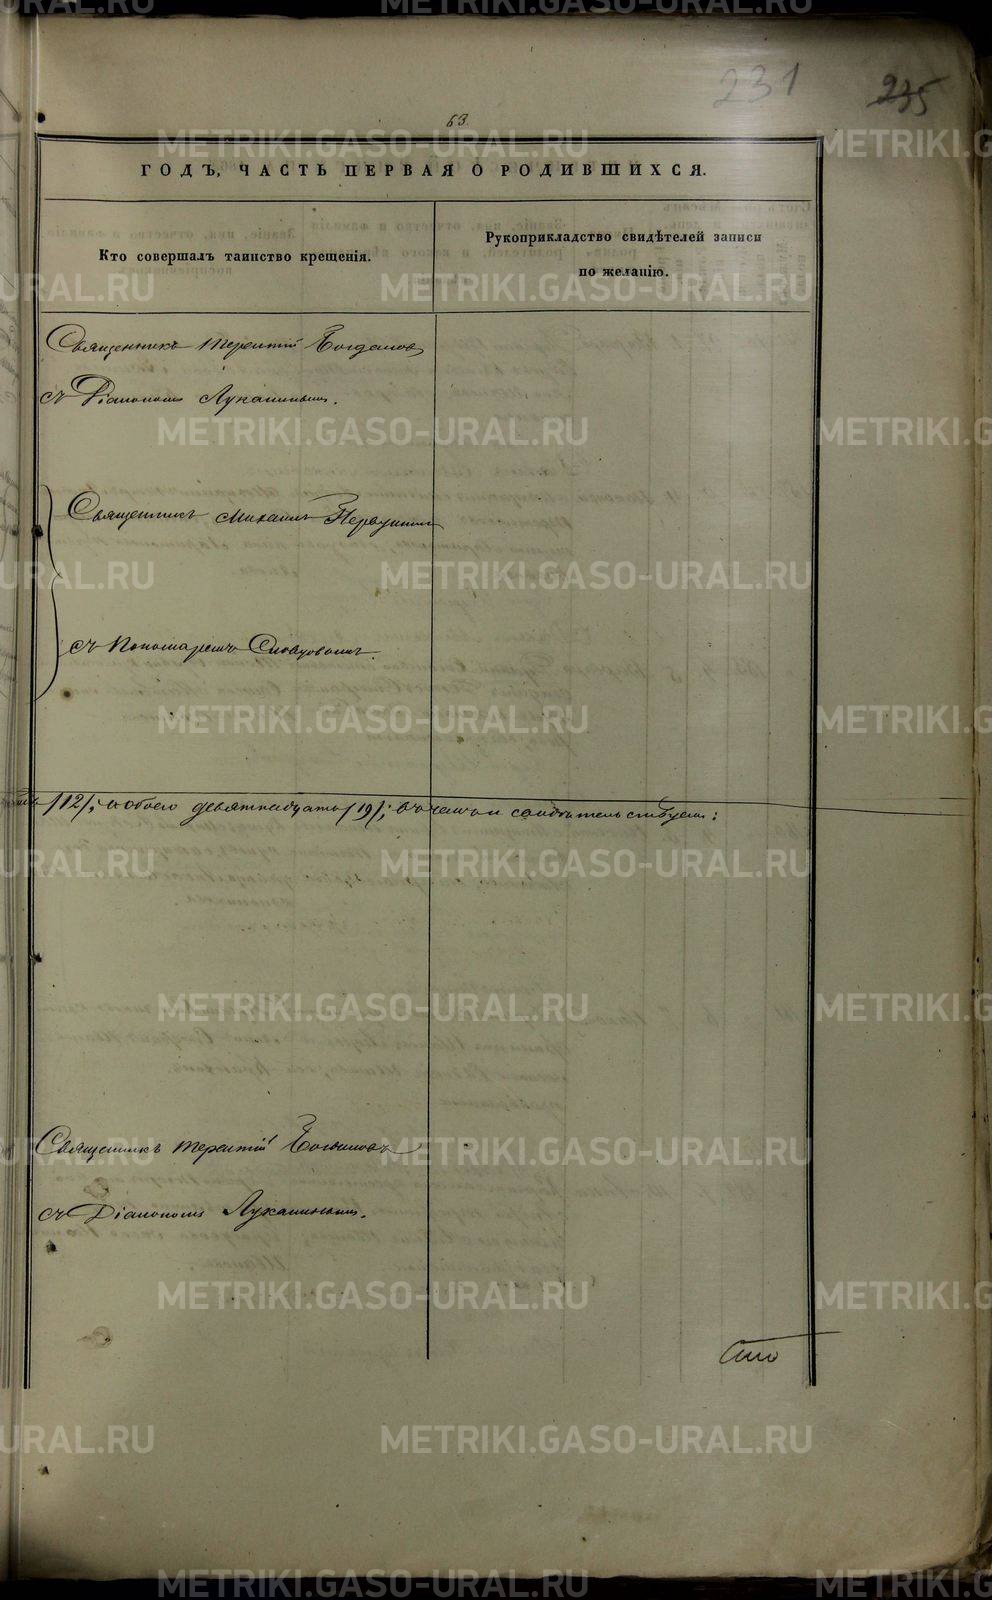 231 235
63.
ГОДЪ, ЧАСТЬ ПЕРВАЯ О РОДИВШИХСЯ.
Кто совершалъ таинство крещенія.
Рукоприкладство свидѣтелей записи
по желанію.
Священникъ Терентій Богдановъ
съ Діакономъ Луканинымъ.
Священникъ Михаилъ Первушинъ
съ Пономаремъ
/12/; и обоего девятнадцать /19/; въ чемъ и свидѣтельствуемъ:
Священникъ Терентій Богдановъ
съ Діакономъ Луканинымъ.
METRIKI.GASO-URAL.RU